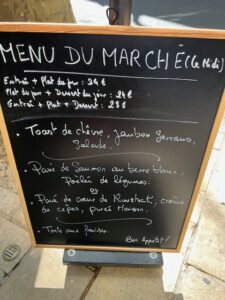 MENU DU MARCHÉ (Ce Midi)
Entrée + Plat du jour : 24 €
Plat du jour + Dessert du jour : 24 €
Entrée + Plat + Dessert : 28 €
• Toast de chèvre, jambon Serrano,
Salade.
• Pavé de Saumon au beurre blanc,
Poêlée de légumes.
ou
• Pavé de cœur de Rumsteck, crème
de cèpes, purée Maison.
• Tarte aux fraises.
Bon Appétit !